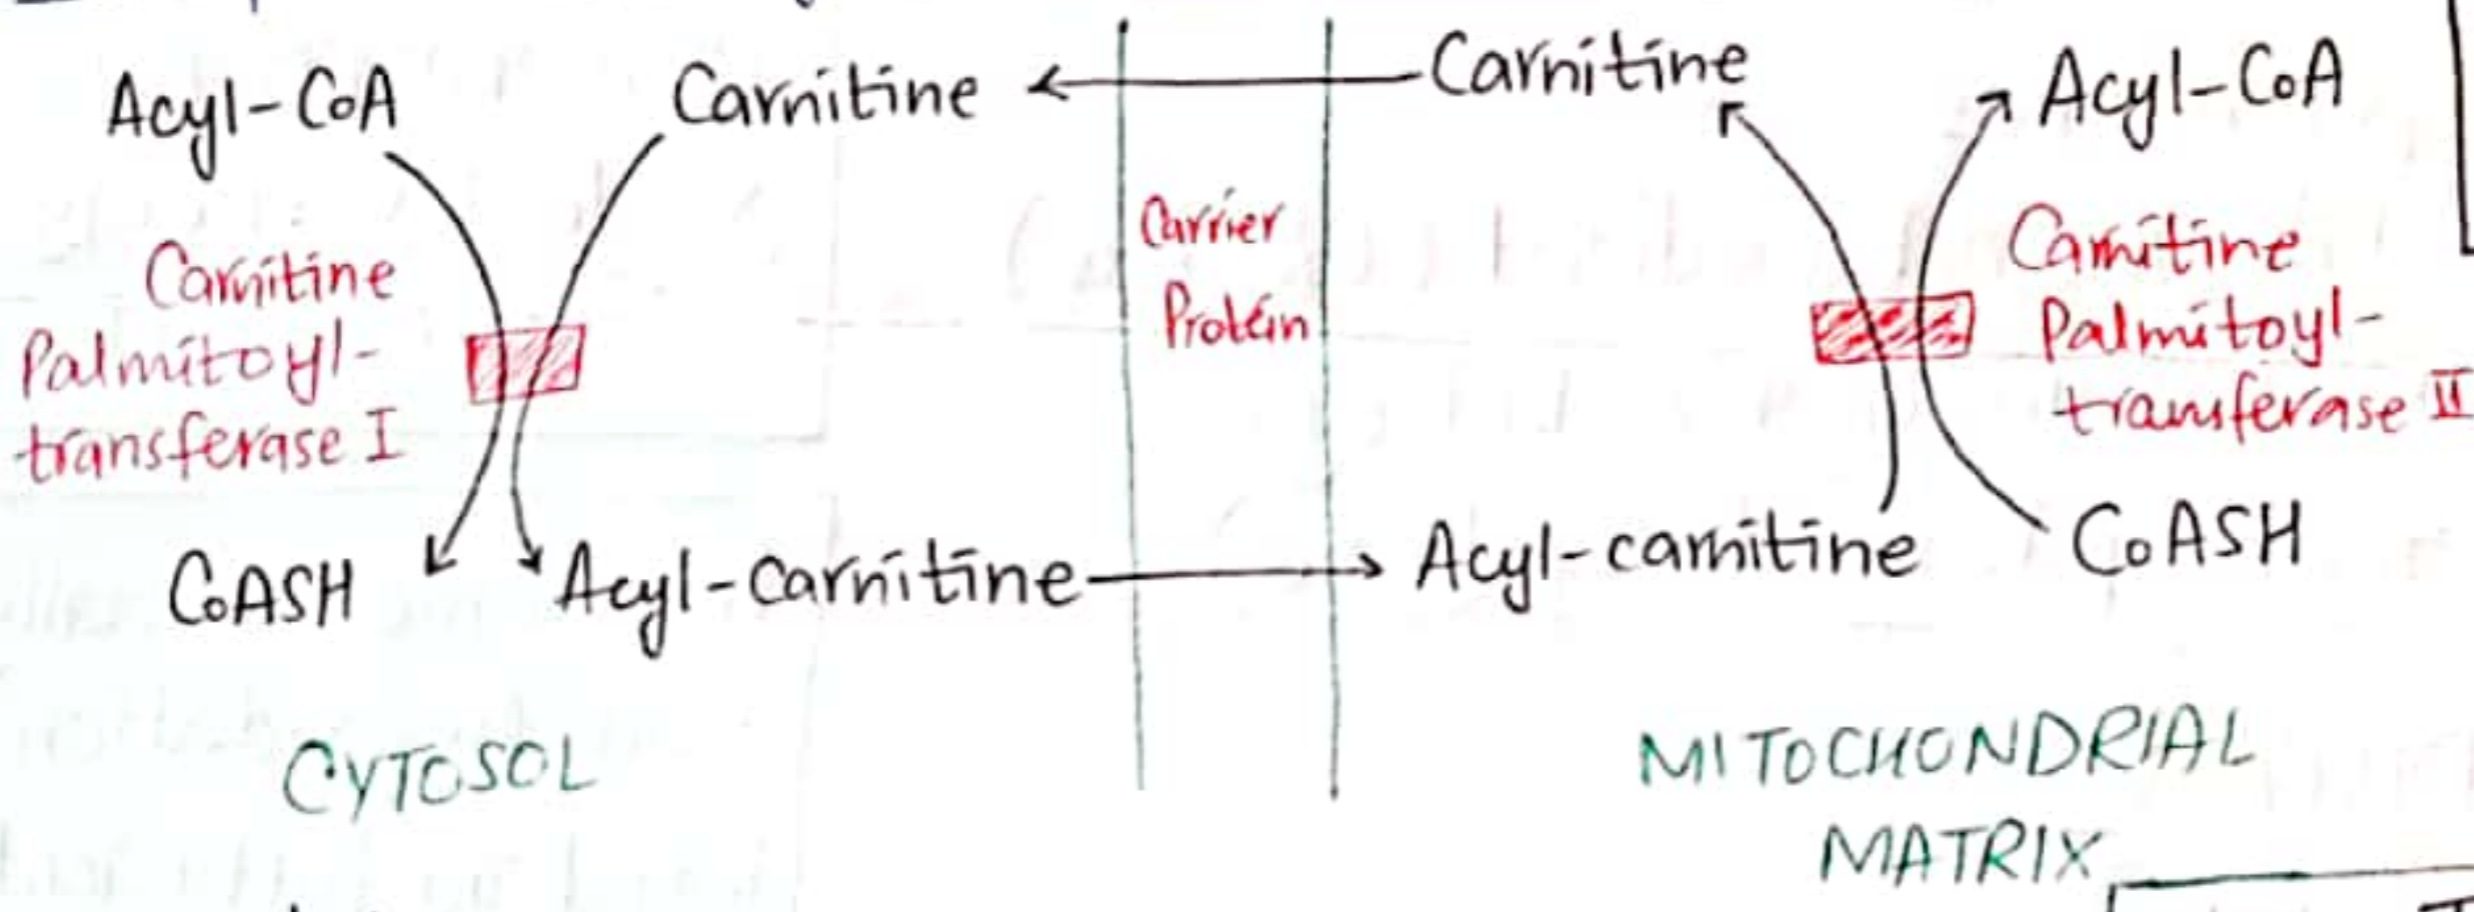 Acyl-CoA
Carnitine
Carnitine
Acyl-CoA
Carnitine
Palmitoyl-
transferase I
Carrier
Protein
Carnitine
Palmitoyl-
transferase II
CoASH
Acyl-carnitine
Acyl-carnitine
CoASH
CYTOSOL
MITOCHONDRIAL
MATRIX